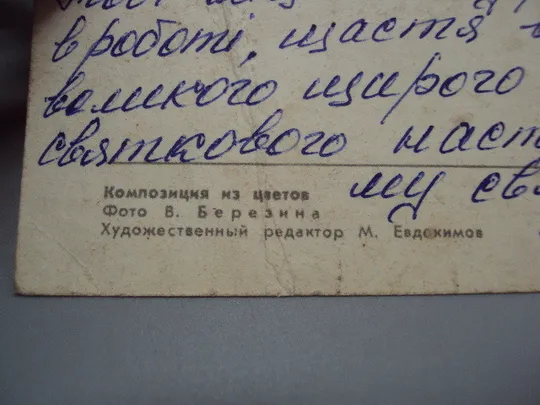 в роботі, щастя
великого щирого
святкового наст
му св
Композиция из цветов
Фото В. Березина
Художественный редактор М. Евдокимов